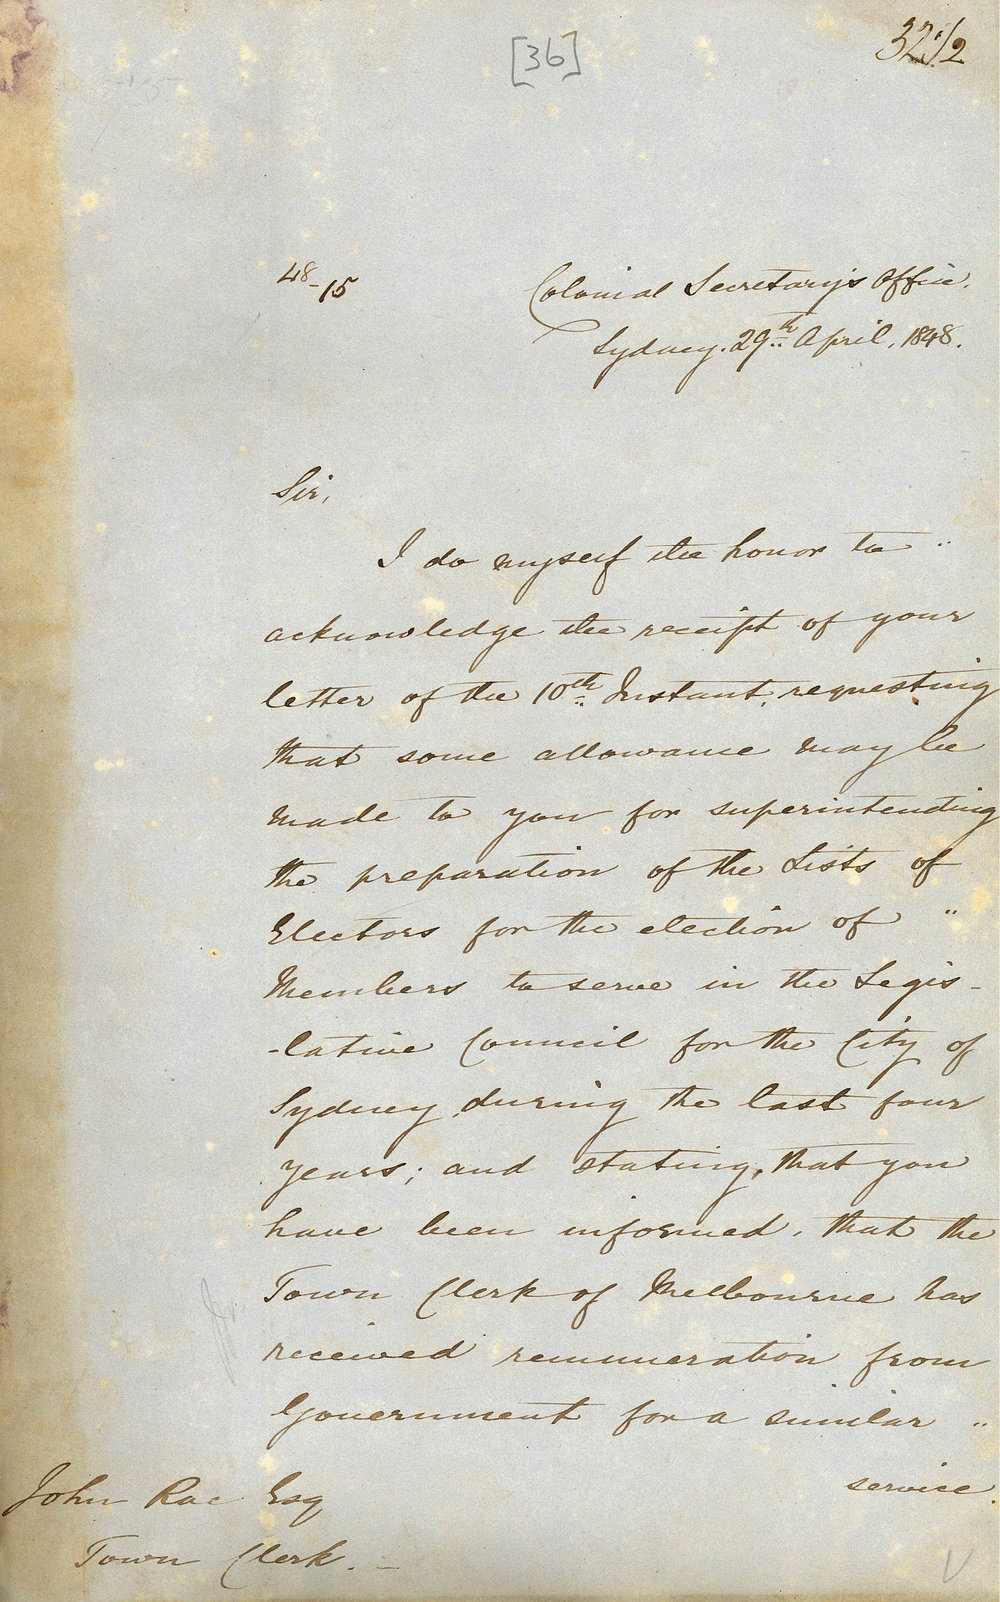 [36]
32 1/2
48-15
Colonial Secretary's Office.
Sydney. 29th April, 1848.
Sir,
I do myself the honor to "
acknowledge the receipt of your
letter of the 10th Instant, requesting
that some allowance may be
made to you for superintending
the preparation of the Lists of
Electors for the election of "
Members to serve in the Legis-
-lative Council for the City of
Sydney during the last four
years; and stating, that you
have been informed, that the
Town Clerk of Melbourne has
received remuneration from
Government for a similar "
service.
John Rae Esq
Town Clerk. _